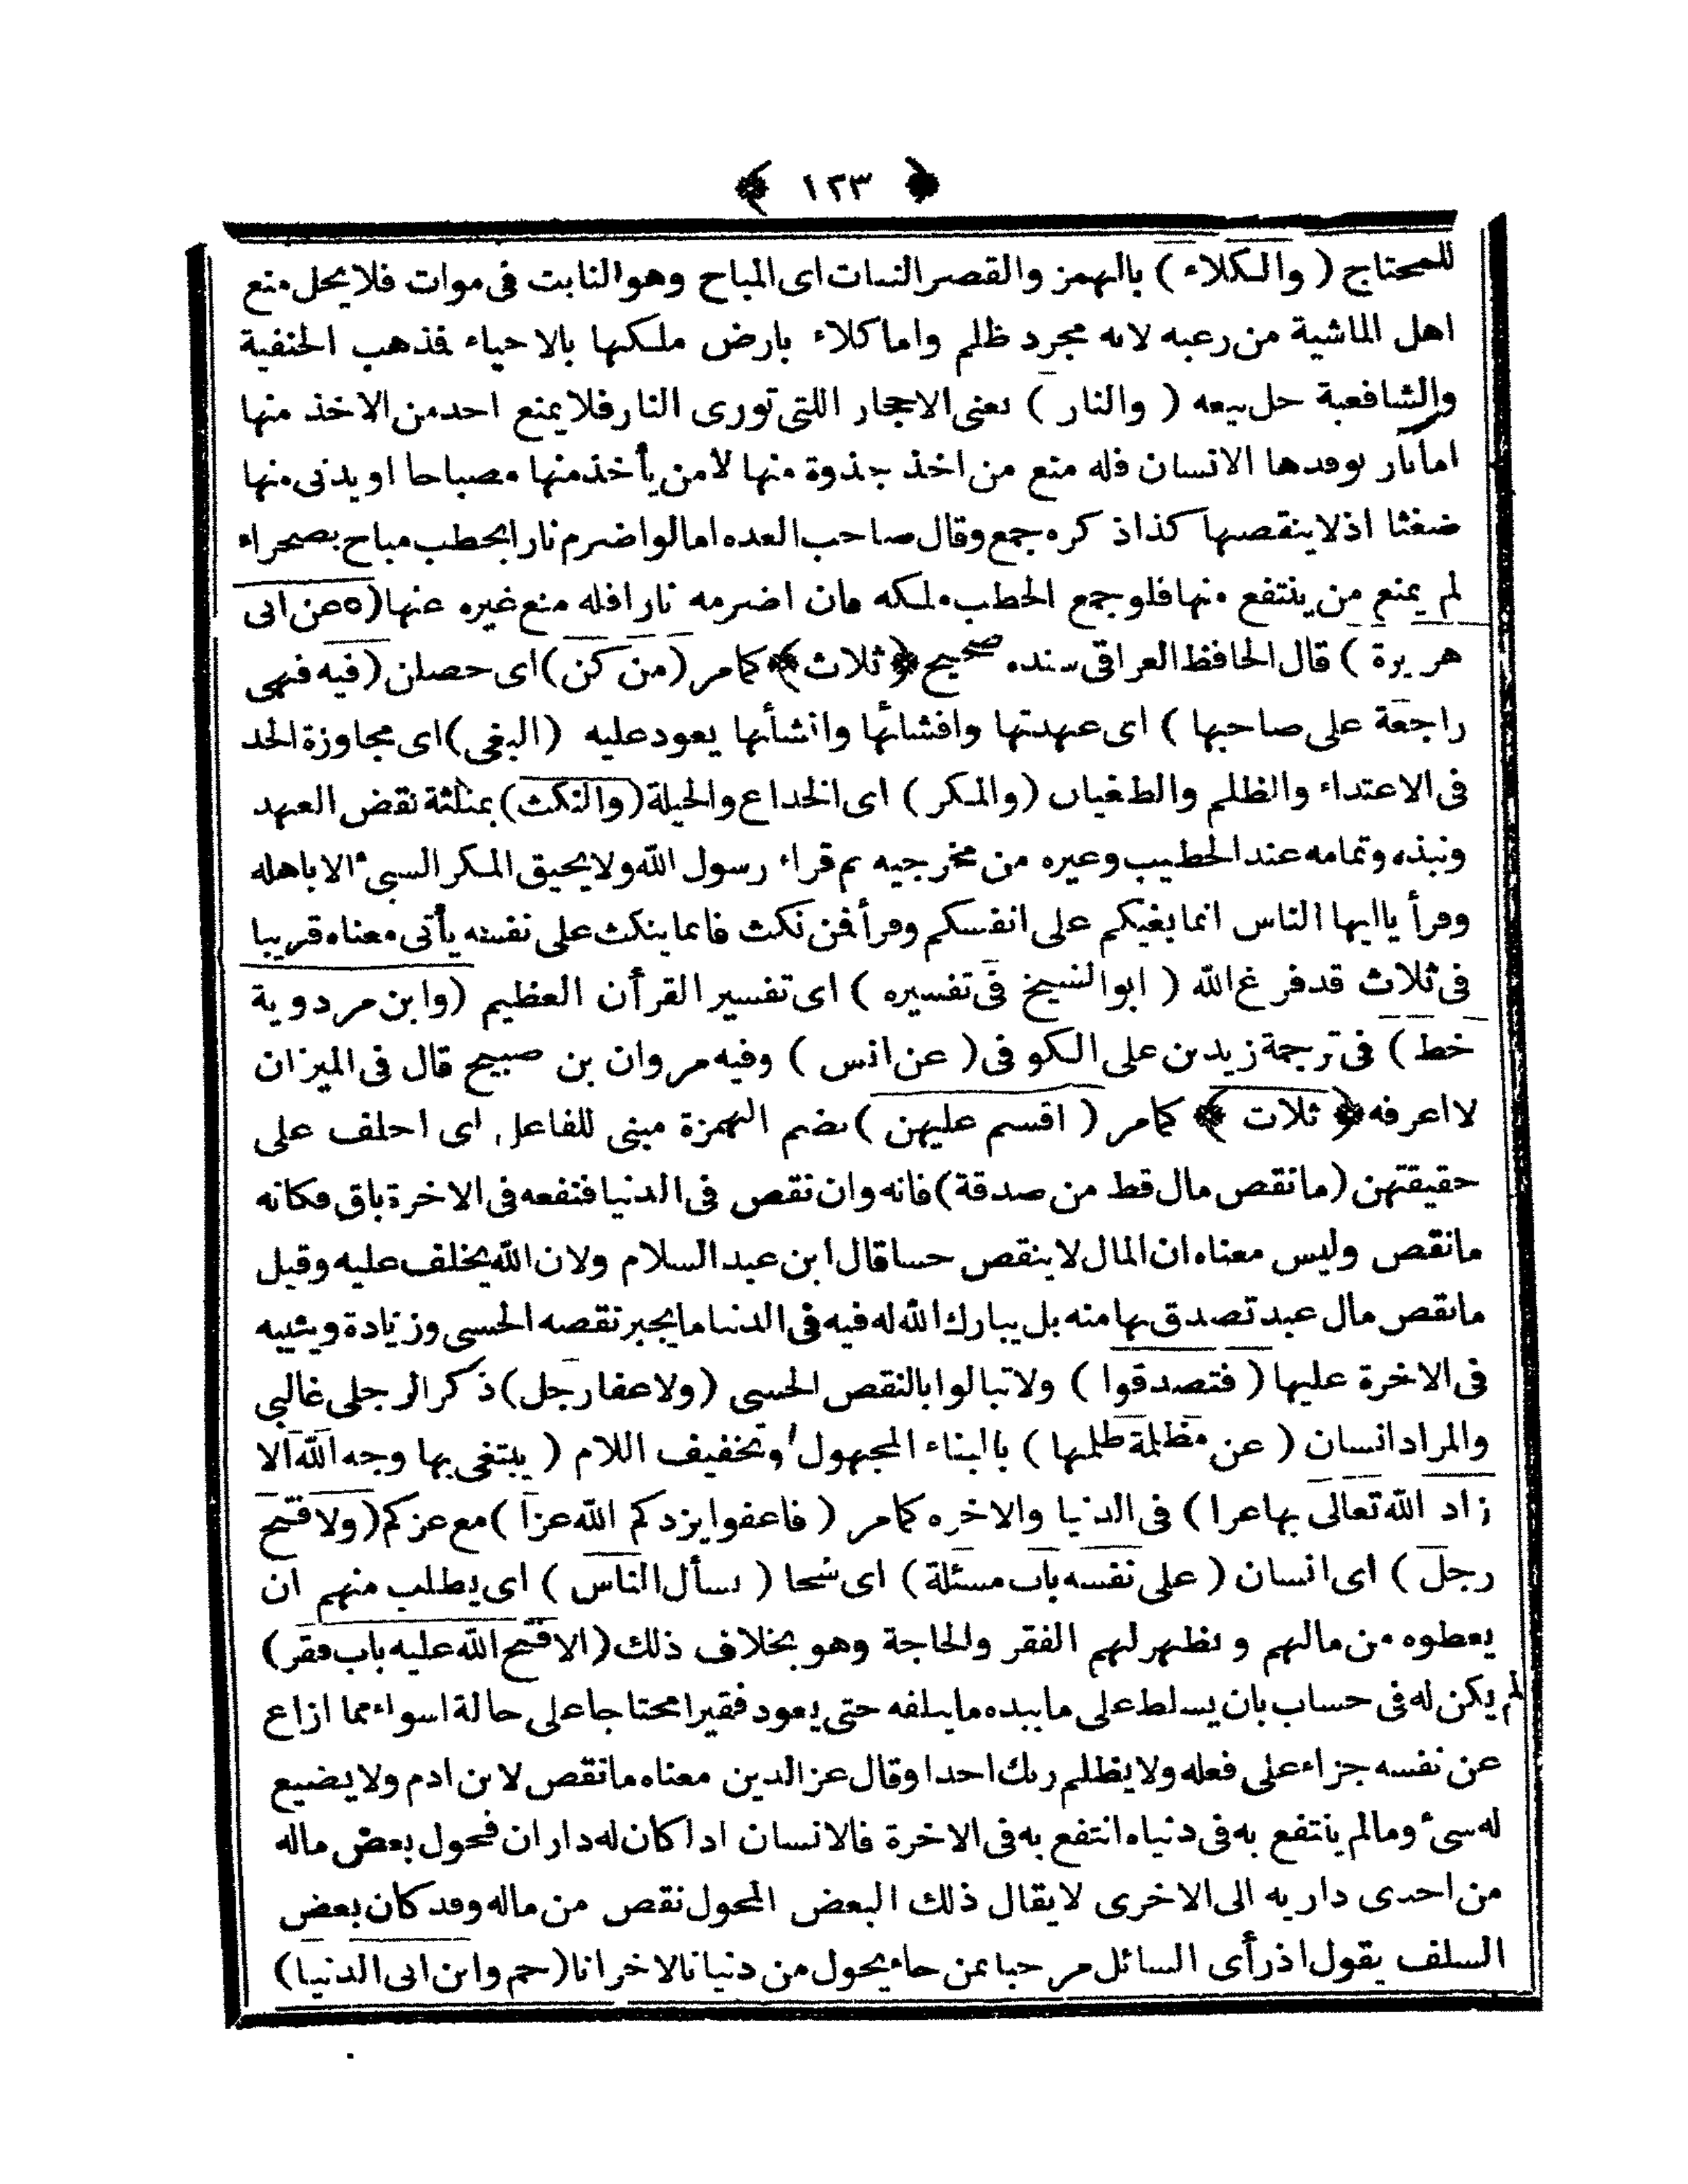 ﴿ ١٢٣ ﴾
للمحتاج ( والكلاء ) بالهمز والقصر النبات اى المباح وهو النابت فى موات فلا يحل منع
اهل الماشية من رعيه لانه مجرد ظلم واما كلاء بارض ملكها بالاحياء فذهب الحنفية
والشافعية حل بيعه ( والنار ) يعنى الاحجار اللتى تورى النار فلا يمنع احد من الاخذ منها
اما نار يوقدها الانسان فله منع من اخذ جذوة منها لا من يأخذ منها مصباحا او يدنى منها
ضغثا اذ لا ينقصها كذا ذكره جمع وقال صاحب العده اما لو اضرم نارا بحطب مباح بصحراء
لم يمنع من ينتفع منها فلو جمع الحطب ملكه فان اضرمه نارا فله منع غيره عنها ( ه عن ابى
هريرة ) قال الحافظ العراقى سنده صحيح ﴿ ثلاث ﴾ كمامر ( من كن ) اى حصلن ( فيه فهى
راجعة على صاحبها ) اى عهدتها وافشائها وانشأنها يعود عليه ( البغى ) اى مجاوزة الحد
فى الاعتداء والظلم والطغيان ( والمكر ) اى الخداع والحيلة ( والنكث ) بمثلثة نقض العهد
ونبذه وتمامه عند الخطيب وغيره من مخرجيه ثم قراء رسول الله ولا يحيق المكر السيئ الا باهله
وقرأ يا ايها الناس انما بغيكم على انفسكم وقرأ فمن نكث فانما ينكث على نفسه يأتى معناه قريبا
فى ثلاث قد فرغ الله ( ابو الشيخ فى تفسيره ) اى تفسير القرأن العظيم ( وابن مردوية
خط ) فى ترجمة زيد بن على الكوفى ( عن انس ) وفيه مروان بن صبيح قال فى الميزان
لا اعرفه ﴿ ثلاث ﴾ كمامر ( اقسم عليهن ) بضم الهمزة مبنى للفاعل اى احلف على
حقيقتهن ( ما نقص مال قط من صدقة ) فانه وان نقص فى الدنيا فنفعه فى الاخرة باق فكانه
ما نقص وليس معناه ان المال لا ينقص حسا قال ابن عبد السلام ولان الله يخلف عليه وقيل
ما نقص مال عبد تصدق بها منه بل يبارك الله له فيه فى الدنيا ما يجبر نقصه الحسى وزيادة ويثيبه
فى الاخرة عليها ( فتصدقوا ) ولا تبالوا بالنقص الحسى ( ولا عفا رجل ) ذكر الرجلى غالبى
والمراد انسان ( عن مظلمة ظلمها ) بالبناء المجهول وتخفيف اللام ( يبتغى بها وجه الله الا
زاد الله تعالى بها عزا ) فى الدنيا والاخره كمامر ( فاعفوا يزدكم الله عزا ) مع عزكم ( ولا فتح
رجل ) اى انسان ( على نفسه باب مسئلة ) اى شحا ( يسأل الناس ) اى يطلب منهم ان
يعطوه من مالهم ويظهر لهم الفقر والحاجة وهو بخلاف ذلك ( الا فتح الله عليه باب فقر )
لم يكن له فى حساب بان يسلط على ما بيده ما يتلفه حتى يعود فقيرا محتاجا على حالة اسواء مما ازاع
عن نفسه جزاء على فعله ولا يظلم ربك احدا وقال عز الدين معناه ما نقص لابن ادم ولا يضيع
له شئ وما لم ينتفع به فى دنياه انتفع به فى الاخرة فالانسان اذا كان له داران فحول بعض ماله
من احدى داريه الى الاخرى لا يقال ذلك البعض المحول نقص من ماله وقد كان بعض
السلف يقول اذ رأى السائل مرحبا بمن جاء يحول من دنيانا لاخرانا ( حم وابن ابى الدنيا )